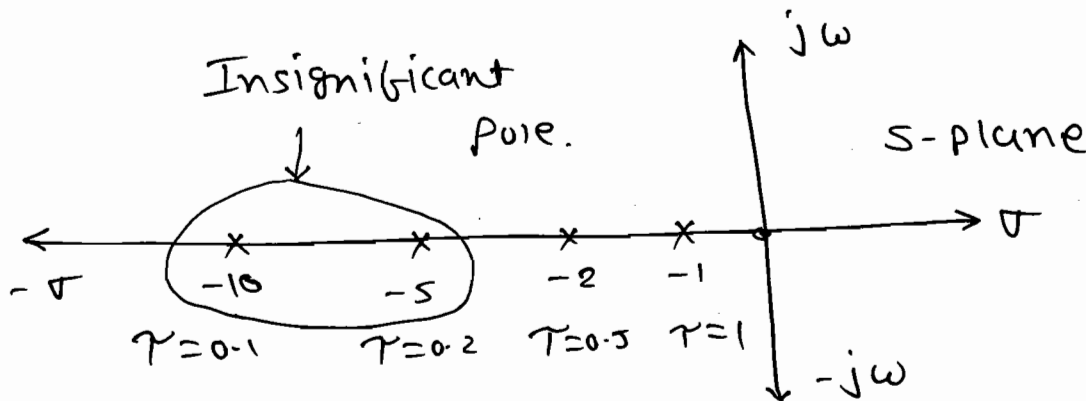 jω
Insignificant
pole.
s-plane
σ
-σ
-10
-5
-2
-1
τ=0.1
τ=0.2
τ=0.5
τ=1
-jω